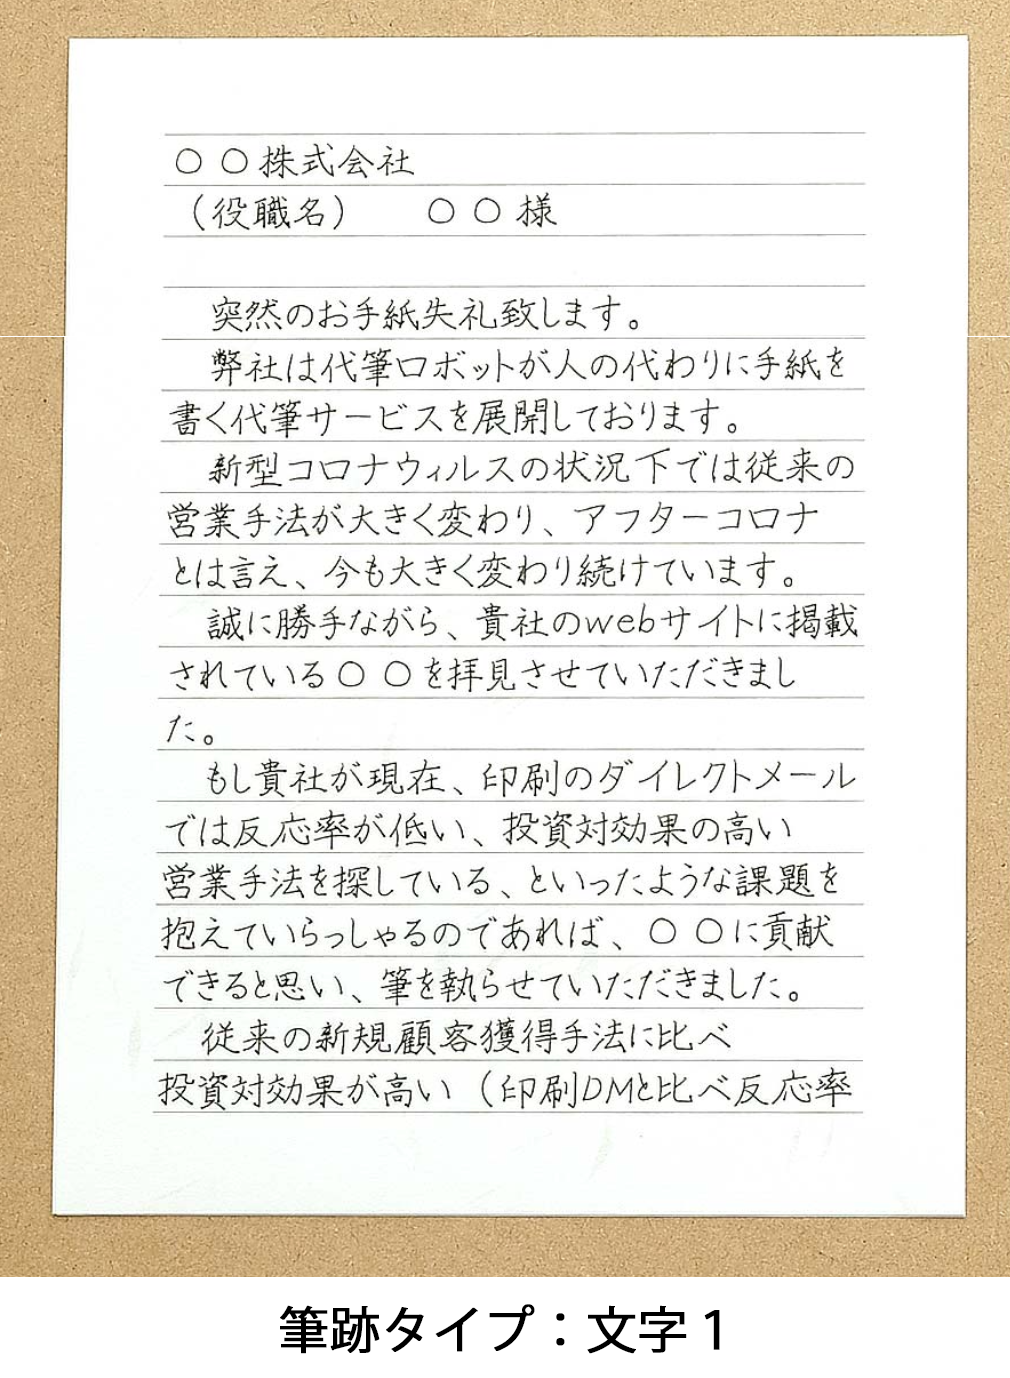 ○○株式会社
（役職名）　○○様
突然のお手紙失礼致します。
弊社は代筆ロボットが人の代わりに手紙を
書く代筆サービスを展開しております。
新型コロナウィルスの状況下では従来の
営業手法が大きく変わり、アフターコロナ
とは言え、今も大きく変わり続けています。
誠に勝手ながら、貴社のwebサイトに掲載
されている○○を拝見させていただきまし
た。
もし貴社が現在、印刷のダイレクトメール
では反応率が低い、投資対効果の高い
営業手法を探している、といったような課題を
抱えていらっしゃるのであれば、○○に貢献
できると思い、筆を執らせていただきました。
従来の新規顧客獲得手法に比べ
投資対効果が高い（印刷DMと比べ反応率
筆跡タイプ：文字1